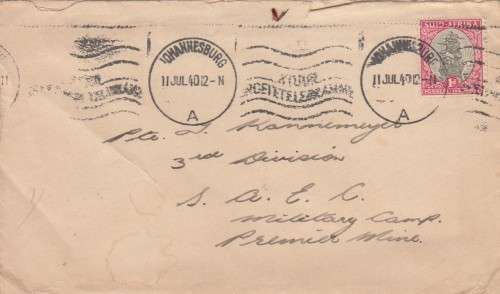 SUID-AFRIKA
JOHANNESBURG
11 JUL 40 12-N
A
STUUR
JOHANNESBURG
11 JUL 40 12-
A
1D
Pte. L. Kannemeyer
3rd Division
S. A. E. C.
Military Camp.
Premier Mine.